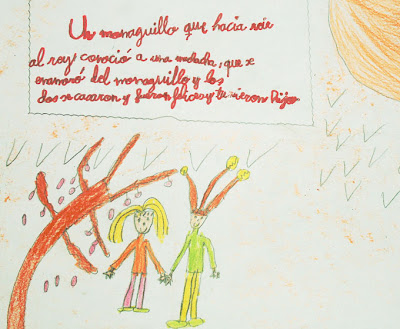 Un monaguillo que hacia reir
al rey conoció a una muchacha, que se
enamoró del monaguillo y los
dos se casaron y fueron felices y tuvieron hijos